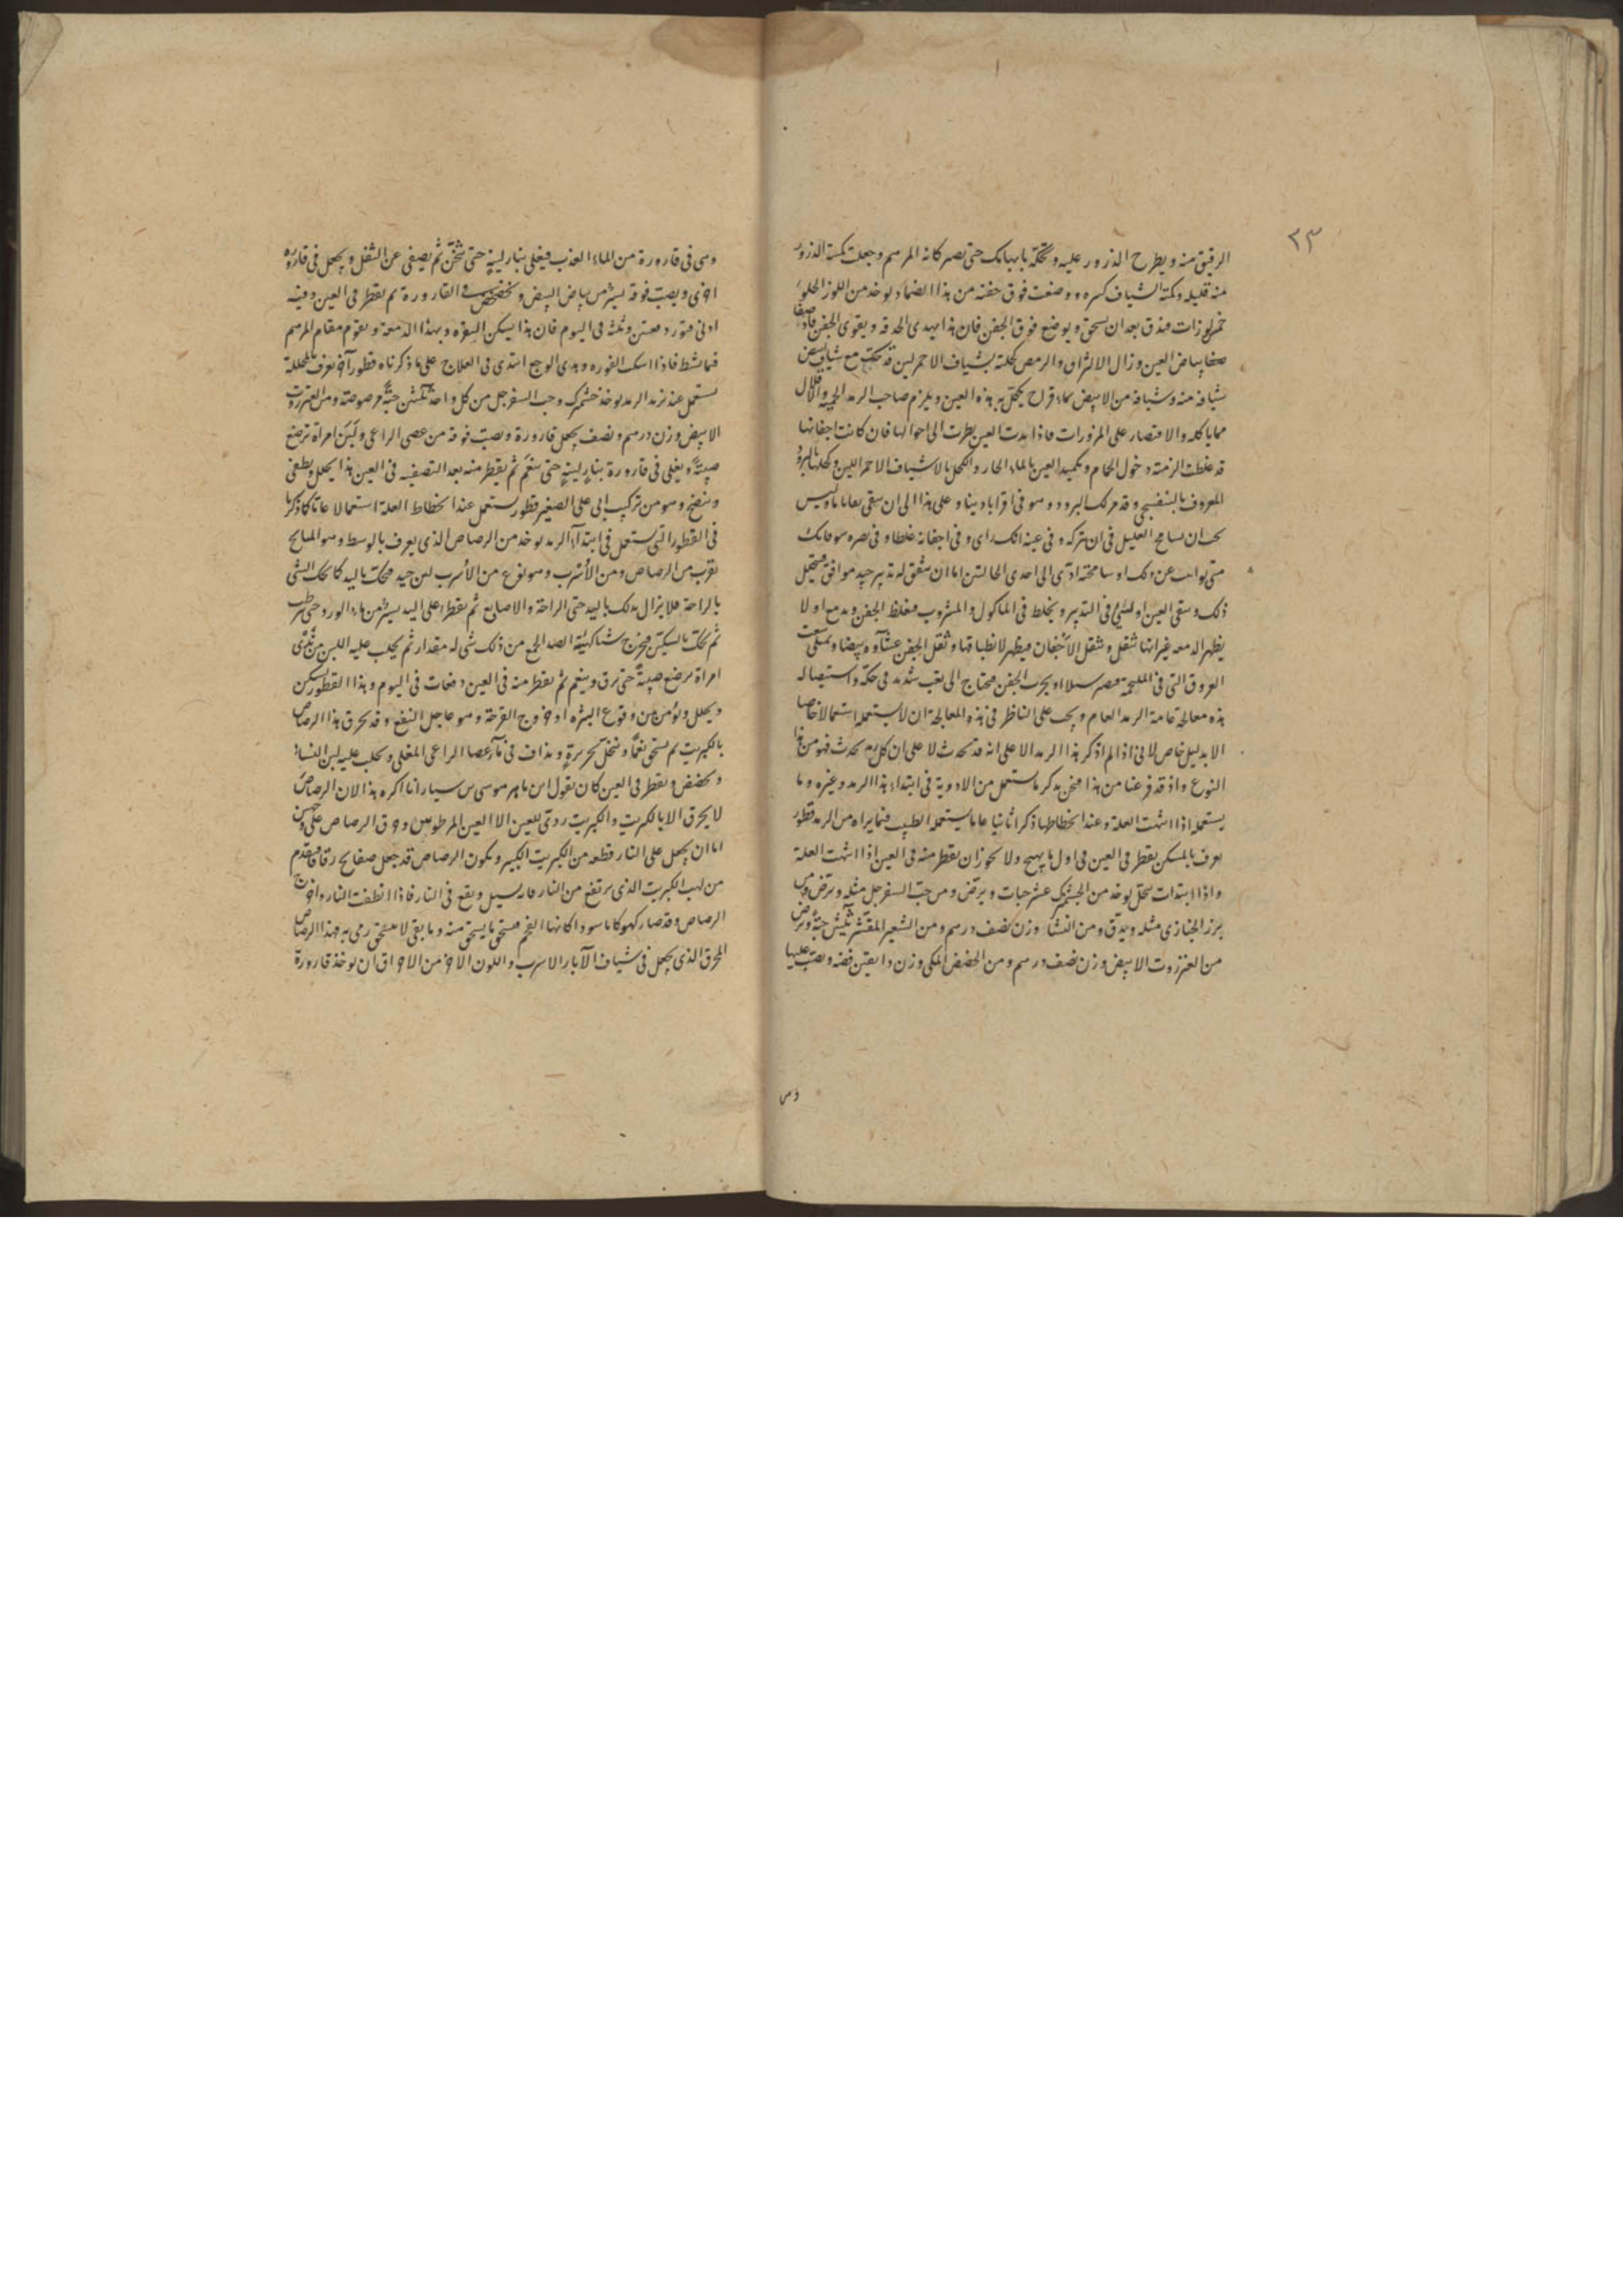 ٢٣
الرقيق منه ويطرح الذرور عليه وتحكّه بابهامك حتى يصير كانه المرهم وجعلت كمية الذرور
منه قليله وكمية الشياف كثيره ووضعت فوق جفنه من هذا الضماد يوخذ من اللوز الحلو
خمس لوزات فيدق بعد ان يسحق ويوضع فوق الجفن فان هذا يهدى الحدقه ويقوى الجفن فاذا صفا
بياض العين وزال الالتزاق والرمص كحلته بشياف الاحمر لين قد حكت مع شياف ابيض
شيافه منه وشيافه من الابيض بماء قراح يكحل به هذه العين ويلزم صاحب الرمد الحميه واقلال
مما ياكله والاقتصار على المزورات فاذا بدت العين نظرت الى احوالها فان كانت اجفانها
قد غلظت الزمته دخول الحمام وتكميد العين بالماء الحار والكحل بالاشياف الاحمر اللين وكحلها بالبرود
المعروف بالبنفسجى وقد مر لك البرود وهو فى اقراباديننا وعلى هذا الى ان ينقى بقايا ماؤه وليس
يجب ان يسامح العليل فى ان يتركه وفى عينه انكسراى وفى اجفانه غلظا وفى بصره سوء فانك
متى توانيت عن ذلك او سامحته ادى الى احدى الحالتين اما ان يتفق له تدبير جيد موافق فيتحلل
ذلك وينقى العين او يسيئ فى التدبير ويخلط فى الماكول والمشروب فيغلظ الجفن ويدمع اولا
يظهر الدمعه غير انها تثقل وتثقل الاجفان فيظهر لانطباقها وثقل الجفن غشاوه بيضا وتمتلى
العروق التى فى الملتحمه فيصير سبلا او يجرب الجفن فيحتاج الى تعب شديد فى حكّه واستيصاله
هذه معالجة عامة الرمد العام ويجب على الناظر فى هذه المعالجة ان لا يستعمله استعمالا خاصا
الا بدليل خاص لانى اذا لم اذكر هذا الرمد الا على انه قد يحدث لا على ان كل رمد يحدث فهو من هذا
النوع واذ قد فرغنا من هذا فنحن نذكر ما يستعمل من الادوية فى ابتداء هذا الرمد وغيره وما
يستعمل اذا انتهت العلة وعند انحطاطها ذكرا ثانيا عاما يستعمله الطبيب فيما يراه من الرمد قطور
يعرف بالمسكن يقطر فى العين فى اول ما يهيج ولا يجوز ان يقطر منه فى العين اذا انتهت العلة
واذا ابتدات تنحل يوخذ من الجشمك عشر حبات ويرضّ ومن حبّ السفرجل مثله ويرضّ ومن
بزر الخبازى مثله ويدق ومن النشا وزن نصف درهم ومن الشعير المقشر ثلثين حبّة ويرض
من العنزروت الابيض وزن نصف درهم ومن الحضض المكى وزن دانقين فضه ويصبّ عليها
وهى
وهى فى قارورة من الماء العذب فيغلى بنار لينةٍ حتى يثخن ثم يصفى عن الثفل ويجعل فى قارورة
اخرى ويصبّ فوقه يسير من بياض البيض ويخضخض فى القارورة ثم يقطر فى العين وفيه
ادنى فتور دفعتين وثلثه فى اليوم فان هذا يسكن الثوره ويهدا الدمعة ويقوم مقام المرهم
فيما ينشط فاذا امسك الفوره وهدى الوجع ابتدى فى العلاج على ما ذكرناه قطور آخر يعرف بالمحللة
يستعمل عند تزيد الرمد يوخذ جشمك وحب السفرجل من كل واحدٍ ثلثين حبّةً مرضوضة ومن العنزروت
الابيض وزن درهم ونصف يجعل قارورة ويصبّ فوقه من عصى الراعى ولبن امراة ترضع
صبيّةً ويغلى فى قارورة بنار لينةٍ حتى ينعم ثم يقطر منه بعد التصفيه فى العين هذا يحلل ويطفى
وينضج وهو من تركيب ابى على الصغير قطور يستعمل عند انحطاط العلة استعمالا عاما كما ذكرنا
فى القطور التى يستعمل فى ابتداء الرمد يوخذ من الرصاص الذى يعرف بالوسط وهو المايح
يقرب من الرصاص ومن الاسرب وهو نوع من الاسرب ليس جيد فيحك باليد كما يحك الشى
بالراحة فلا يزال يدلك باليد حتى الراحة والاصابع ثم يقطر على اليد يسير من ماء الورد حتى يترطب
ثم يحك بالسكين فيخرج شيا كهيئة الصدا الجمع من ذلك شى له مقدار ثم يحلب عليه اللبن من ثدى
امراة ترضع صبيةً حتى يرق وينعم ثم يقطر منه فى العين دفعات فى اليوم وهذا القطور يسكن
ويحلل ويؤمن من وقوع البثره او خروج القرحة وهو عاجل النفع وقد يحرق هذا الرصاص
بالكبريت ثم يسحق نعمًا وينخل بحريرةٍ ويذاف فى ماء عصا الراعى المغلى ويحلب عليه لبن النساء
ويخضخض ويقطر فى العين كان يقول ابن ماهر موسى بن سيار انا اكره هذا لان الرصاص
لا يحرق الا بالكبريت والكبريت ردى للعين الا العين المرطوبين وحرق الرصاص على وجهين
اما ان يجعل على النار قطعه من الكبريت الكبير ويكون الرصاص قد جعل صفايح رقاقا فيقدم
من لهب الكبريت الذى يرتفع من النار فانه يسيل ويقع فى النار فاذا انطفت النار واخرج
الرصاص وقد صار كهوكانا سوداء كانها الفحم فيسحق ما يسحق منه وما بقى لا يسحق رمى به فهذا الرصاص
المحرق الذى يجعل فى شياف الآبار الاسرب واللون الاخر من الاحراق ان يوخذ قارورة